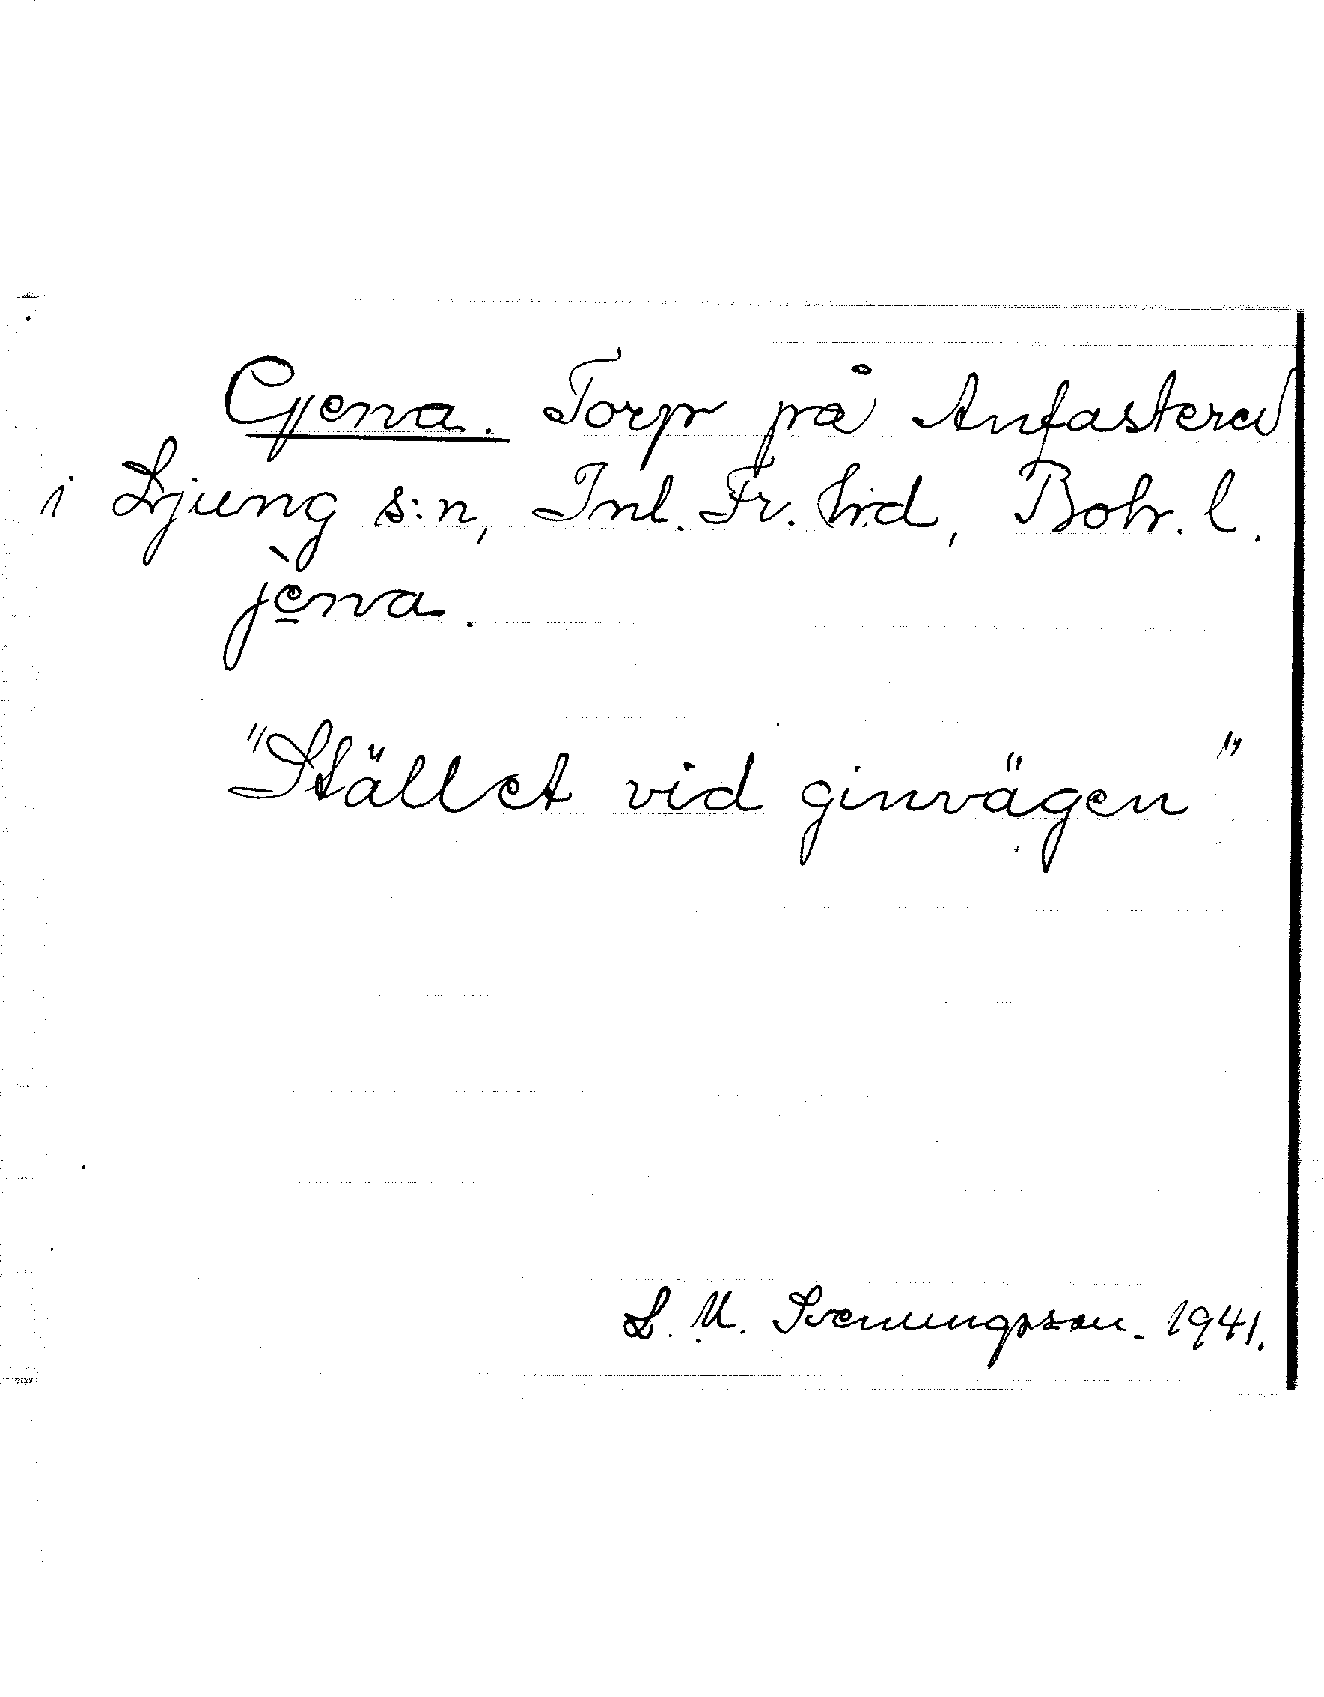 Gjena. Torp på Anfasterød
i Ljung s:n, Inl. Fr. hrd, Boh. l.
jèna.
"Stället vid ginvägen"
L. M. Svenungsson. 1941.